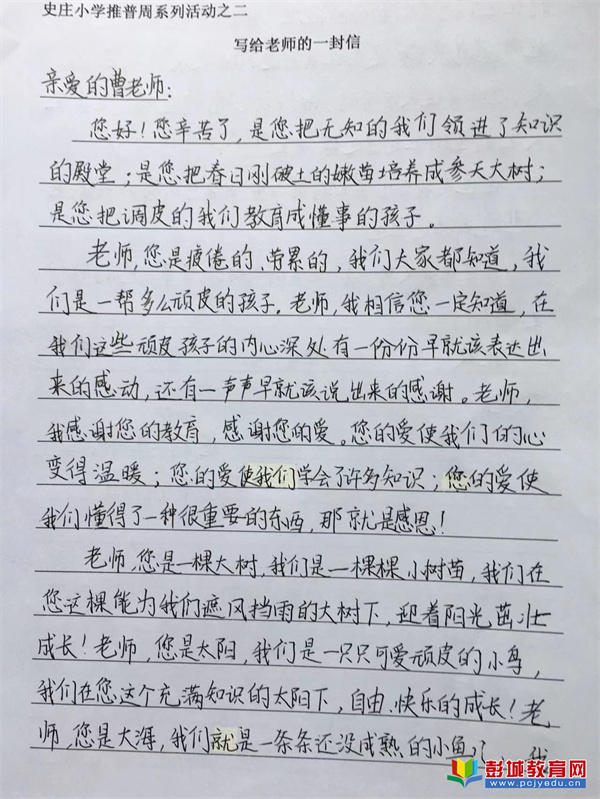 史庄小学推普周系列活动之二
写给老师的一封信
亲爱的曹老师：
您好！您辛苦了，是您把无知的我们领进了知识
的殿堂；是您把春日刚破土的嫩苗培养成参天大树；
是您把调皮的我们教育成懂事的孩子。
老师，您是疲倦的、劳累的，我们大家都知道，我
们是一帮多么顽皮的孩子。老师，我相信您一定知道，在
我们这些顽皮孩子的内心深处有一份份早就该表达出
来的感动，还有一声声早就该说出来的感谢。老师，
我感谢您的教育，感谢您的爱。您的爱使我们的心
变得温暖；您的爱使我们学会了许多知识；您的爱使
我们懂得了一种很重要的东西，那就是感恩！
老师，您是一棵大树，我们是一棵棵小树苗，我们在
您这棵能为我们遮风挡雨的大树下，迎着阳光茁壮
成长！老师，您是太阳，我们是一只只可爱顽皮的小鸟，
我们在您这个充满知识的太阳下，自由、快乐的成长！老
师，您是大海，我们就是一条条还没成熟的小鱼儿，我
彭城教育网
www.pcjyw.com